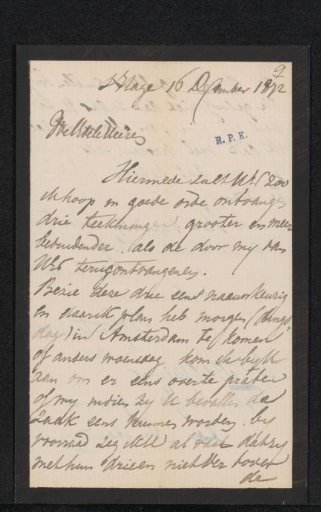 9
'sHage 16 December 1872
WelEdele Heer,
R. P. K.
Hiermede zult U (zoo
ik hoop in goede orde ontvangen
drie teekeningen grooter en meer
als de door my van
UEd terugontvangenen.
Bezie deze drie eens naauwkeurig
en daar ik plan heb morgen (dings
dag) in Amsterdam te komen
of anders woensdag kom ik by U
aan om er eens over te praten
of my indien zy U bevallen de
zaak eens kunnen worden. by
voorraad zeg ik U al vast dat zy
met hun drieen niet ver boven
de